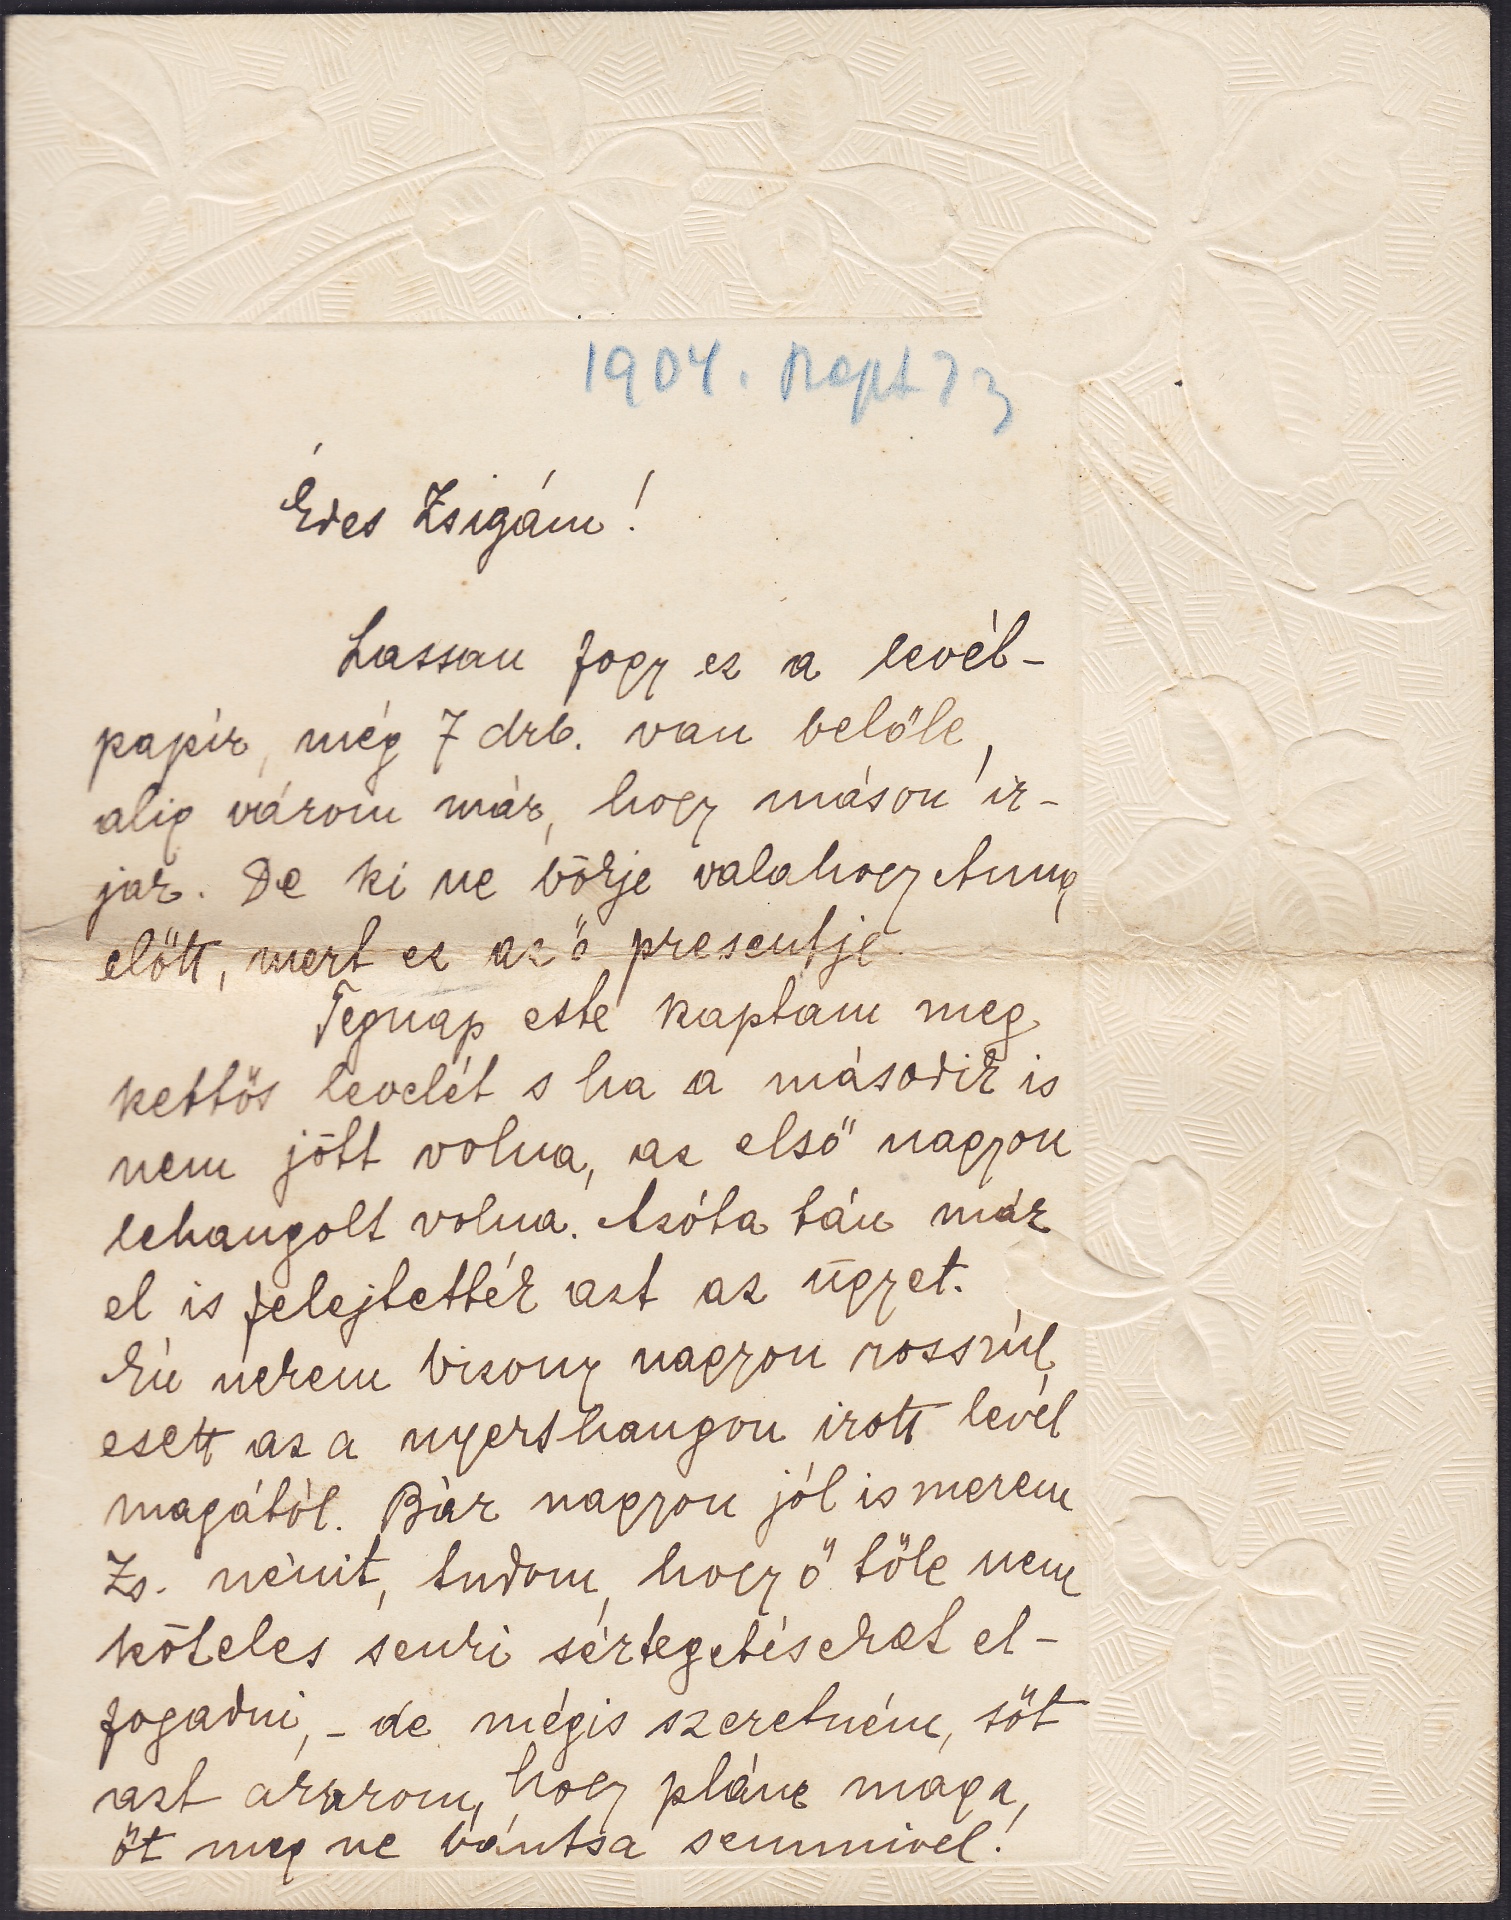 1904. Sept 23
Édes Zsigám!
Lassan fogy ez a levél-
papír, még 7 drb. van belőle,
alig várom már, hogy máson ír-
jak. De ki ne bökje valahogy Anna
előtt, mert ez az ő presentje.
Tegnap este kaptam meg
kettős levelét s ha a második is
nem jött volna, az első nagyon
lehangolt volna. Azóta tán már
el is felejtették azt az ügyet.
Én nekem bizony nagyon rosszúl
esett az a nyershangon irott levél
magától. Bár nagyon jól ismerem
Zs. nénit, tudom, hogy ő tőle nem
köteles senki sértegetéseket el-
fogadni, - de mégis szeretném, sőt
azt akarom, hogy pláne maga,
őt meg ne bántsa semmivel!